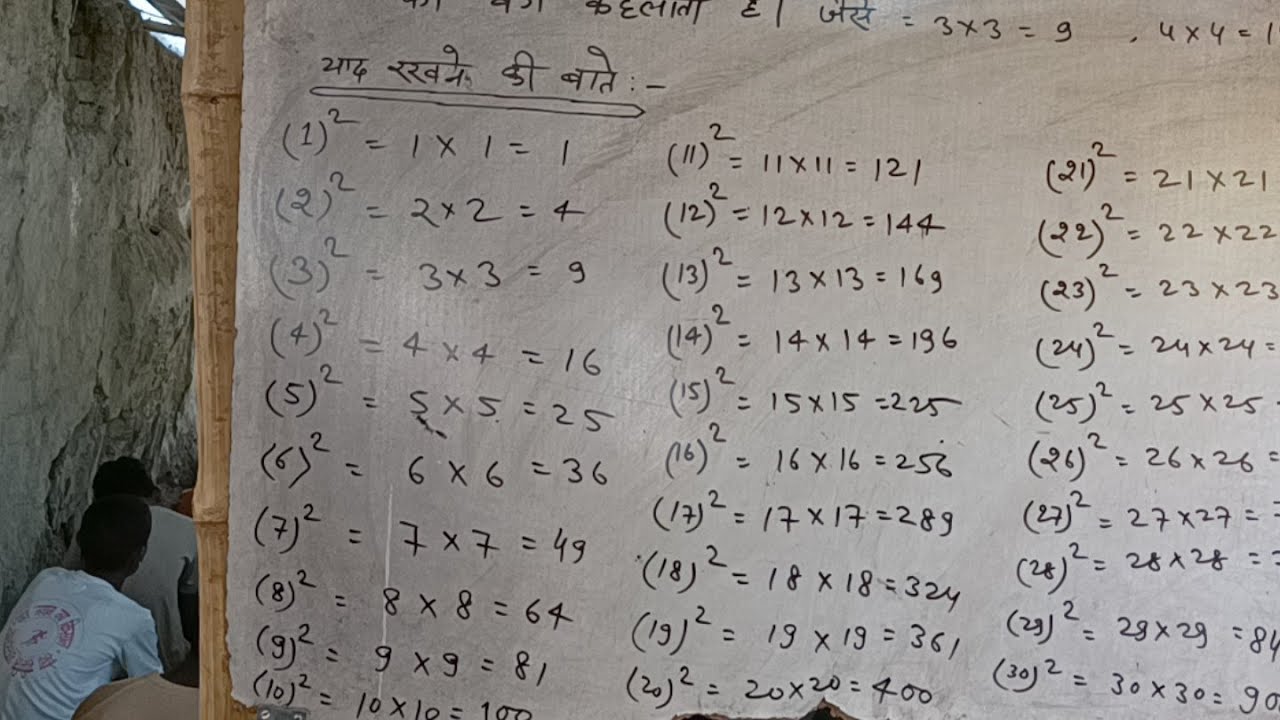 का वर्ग कहलाता है। जैसे = 3×3 = 9 , 4×4 = 1
याद रखने की बाते :-
(1)² = 1 × 1 = 1
(2)² = 2×2 = 4
(3)² = 3×3 = 9
(4)² = 4×4 = 16
(5)² = 5×5 = 25
(6)² = 6 × 6 = 36
(7)² = 7 × 7 = 49
(8)² = 8 × 8 = 64
(9)² = 9 × 9 = 81
(10)² = 10×10 = 100
(11)² = 11×11 = 121
(12)² = 12×12 = 144
(13)² = 13×13 = 169
(14)² = 14×14 = 196
(15)² = 15×15 = 225
(16)² = 16×16 = 256
(17)² = 17×17 = 289
(18)² = 18×18 = 324
(19)² = 19×19 = 361
(20)² = 20×20 = 400
(21)² = 21×21
(22)² = 22×22
(23)² = 23×23
(24)² = 24×24 =
(25)² = 25×25
(26)² = 26×26 =
(27)² = 27×27 =
(28)² = 28×28 =
(29)² = 29×29 = 84
(30)² = 30×30 = 90